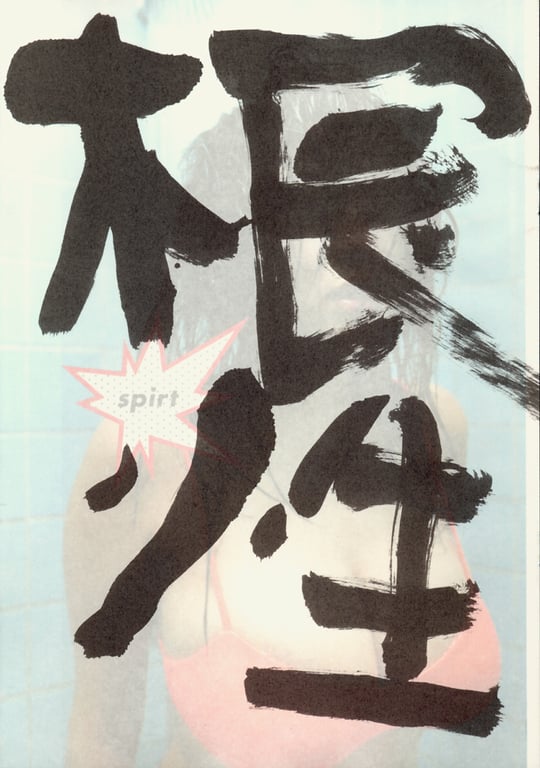 根
spirt
性